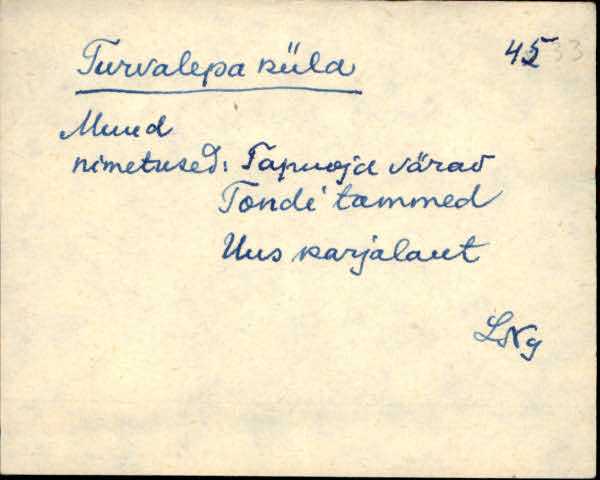 Turvalepa küla 45 33
Muud
nimetused: Tapuoja värav
Tondi tammed
Uus karjalaut
LNg